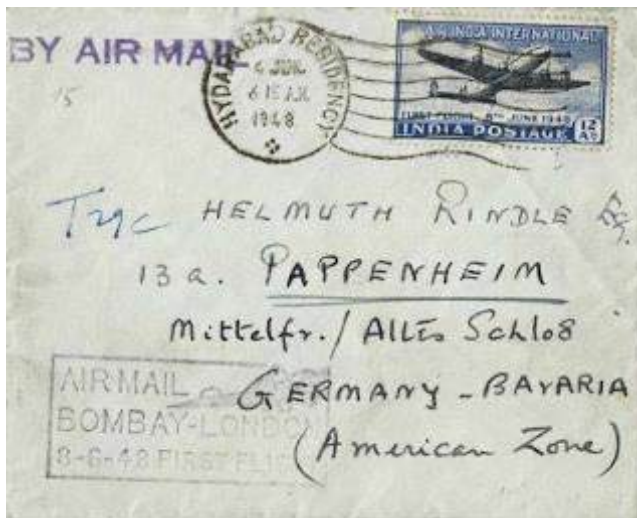 BY AIR MAIL
HYDARABAD RESIDENCY
4 JUN.
6 15 A.M.
1948
AIR INDIA INTERNATIONAL
FIRST FLIGHT 8TH JUNE 1948
INDIA POSTAGE 12 AS
15
HELMUTH RINDLE
13 a. PAPPENHEIM
Mittelfr. / Altes Schloß
GERMANY - BAVARIA
(American Zone)
AIR MAIL
BOMBAY-LONDON
8-6-48 FIRST FLIGHT